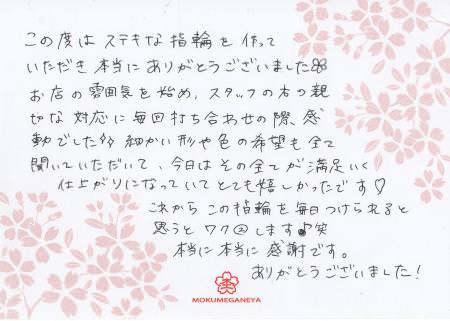 この度は ステキな 指輪を 作って
いただき 本当に ありがとうございました
お店の 雰囲気を 始め、スタッフの 方の 親
切な 対応に 毎回 打ち合わせの 際、感
動でした 細かい 形や 色の 希望も 全て
聞いていただいて、今日は その全てが 満足いく
仕上がりに なっていて とても 嬉しかったです♡
これから この指輪を 毎日つけられると
思うと ワクワクします♪笑
本当に 本当に 感謝です。
ありがとうございました!
MOKUMEGANEYA